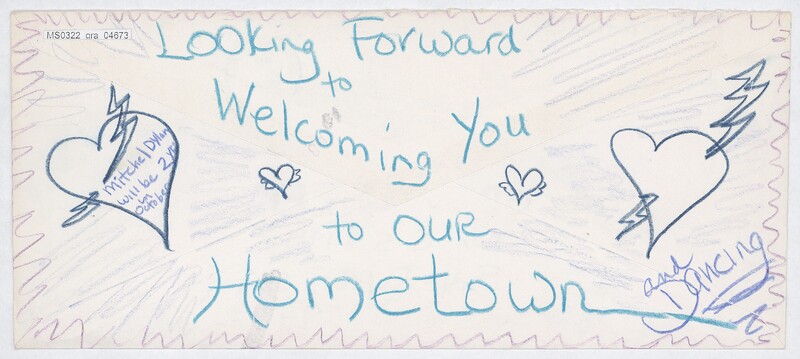 MS0322_ora_04673
Looking Forward
to
Welcoming You
to OUR
Hometown
and
Dancing
Mitchel Dylan
will be 2 yr
in
October